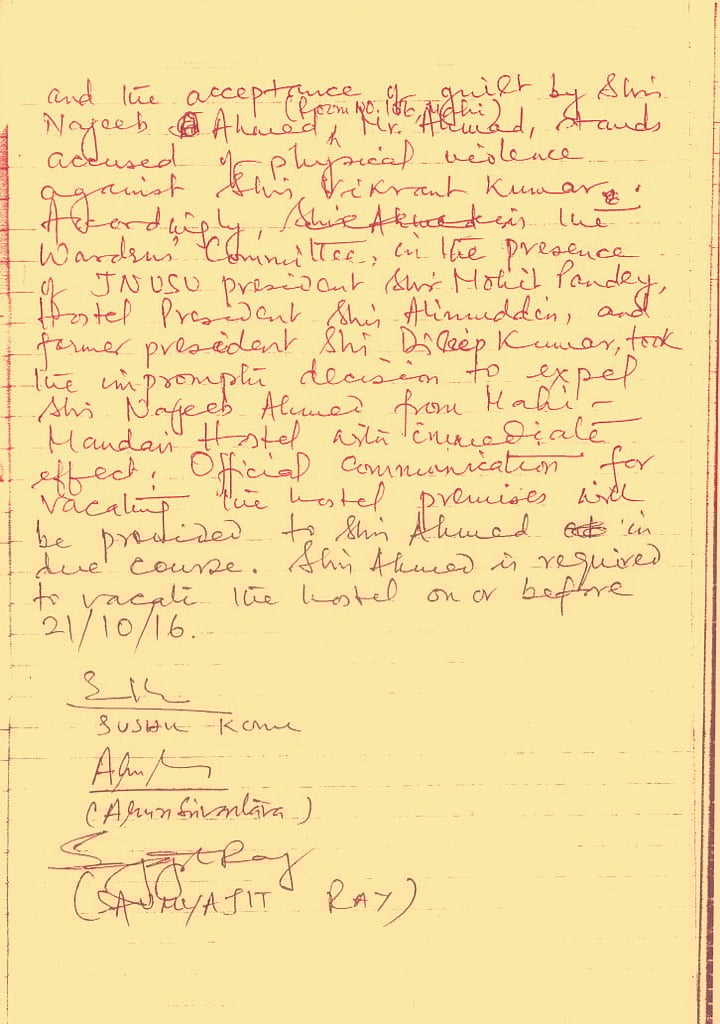 and the acceptance of guilt by Shri
(Room No. 106, Mahi)
Najeeb Ahmed, Mr. Ahmad, stands
accused of physical violence
against Shri Vikrant Kumar.
Accordingly, Shri Ahmed in the
Wardens' Committee, in the presence
of JNUSU president Shri Mohit Pandey,
Hostel President Shri Alimuddin, and
former president Shri Dileep Kumar, took
the impromptu decision to expel
Shri Najeeb Ahmed from Mahi-
Mandavi Hostel with immediate
effect. Official communication for
vacating the hostel premises will
be provided to Shri Ahmed in
due course. Shri Ahmed is required
to vacate the hostel on or before
21/10/16.
SUSHIL Kumar
(Arun Srivastava)
(SAUMYAJIT RAY)